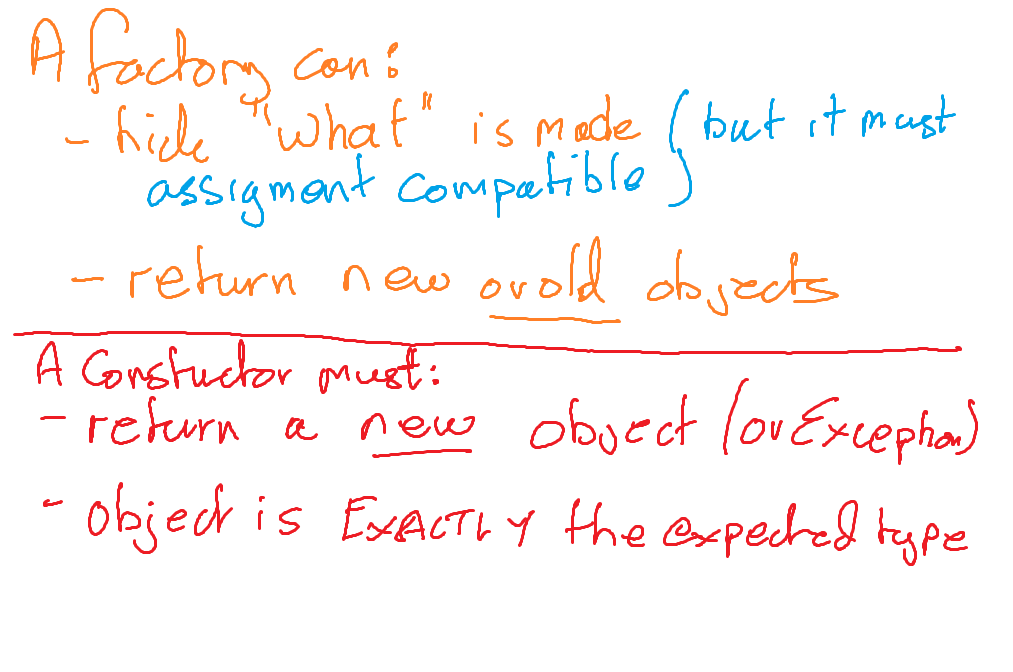 A factory can:
- hide "what" is made (but it must
assigment compatible)
- return new or old objects
A Constuctor must:
- return a new object (or Exception)
- object is EXACTLY the expected type